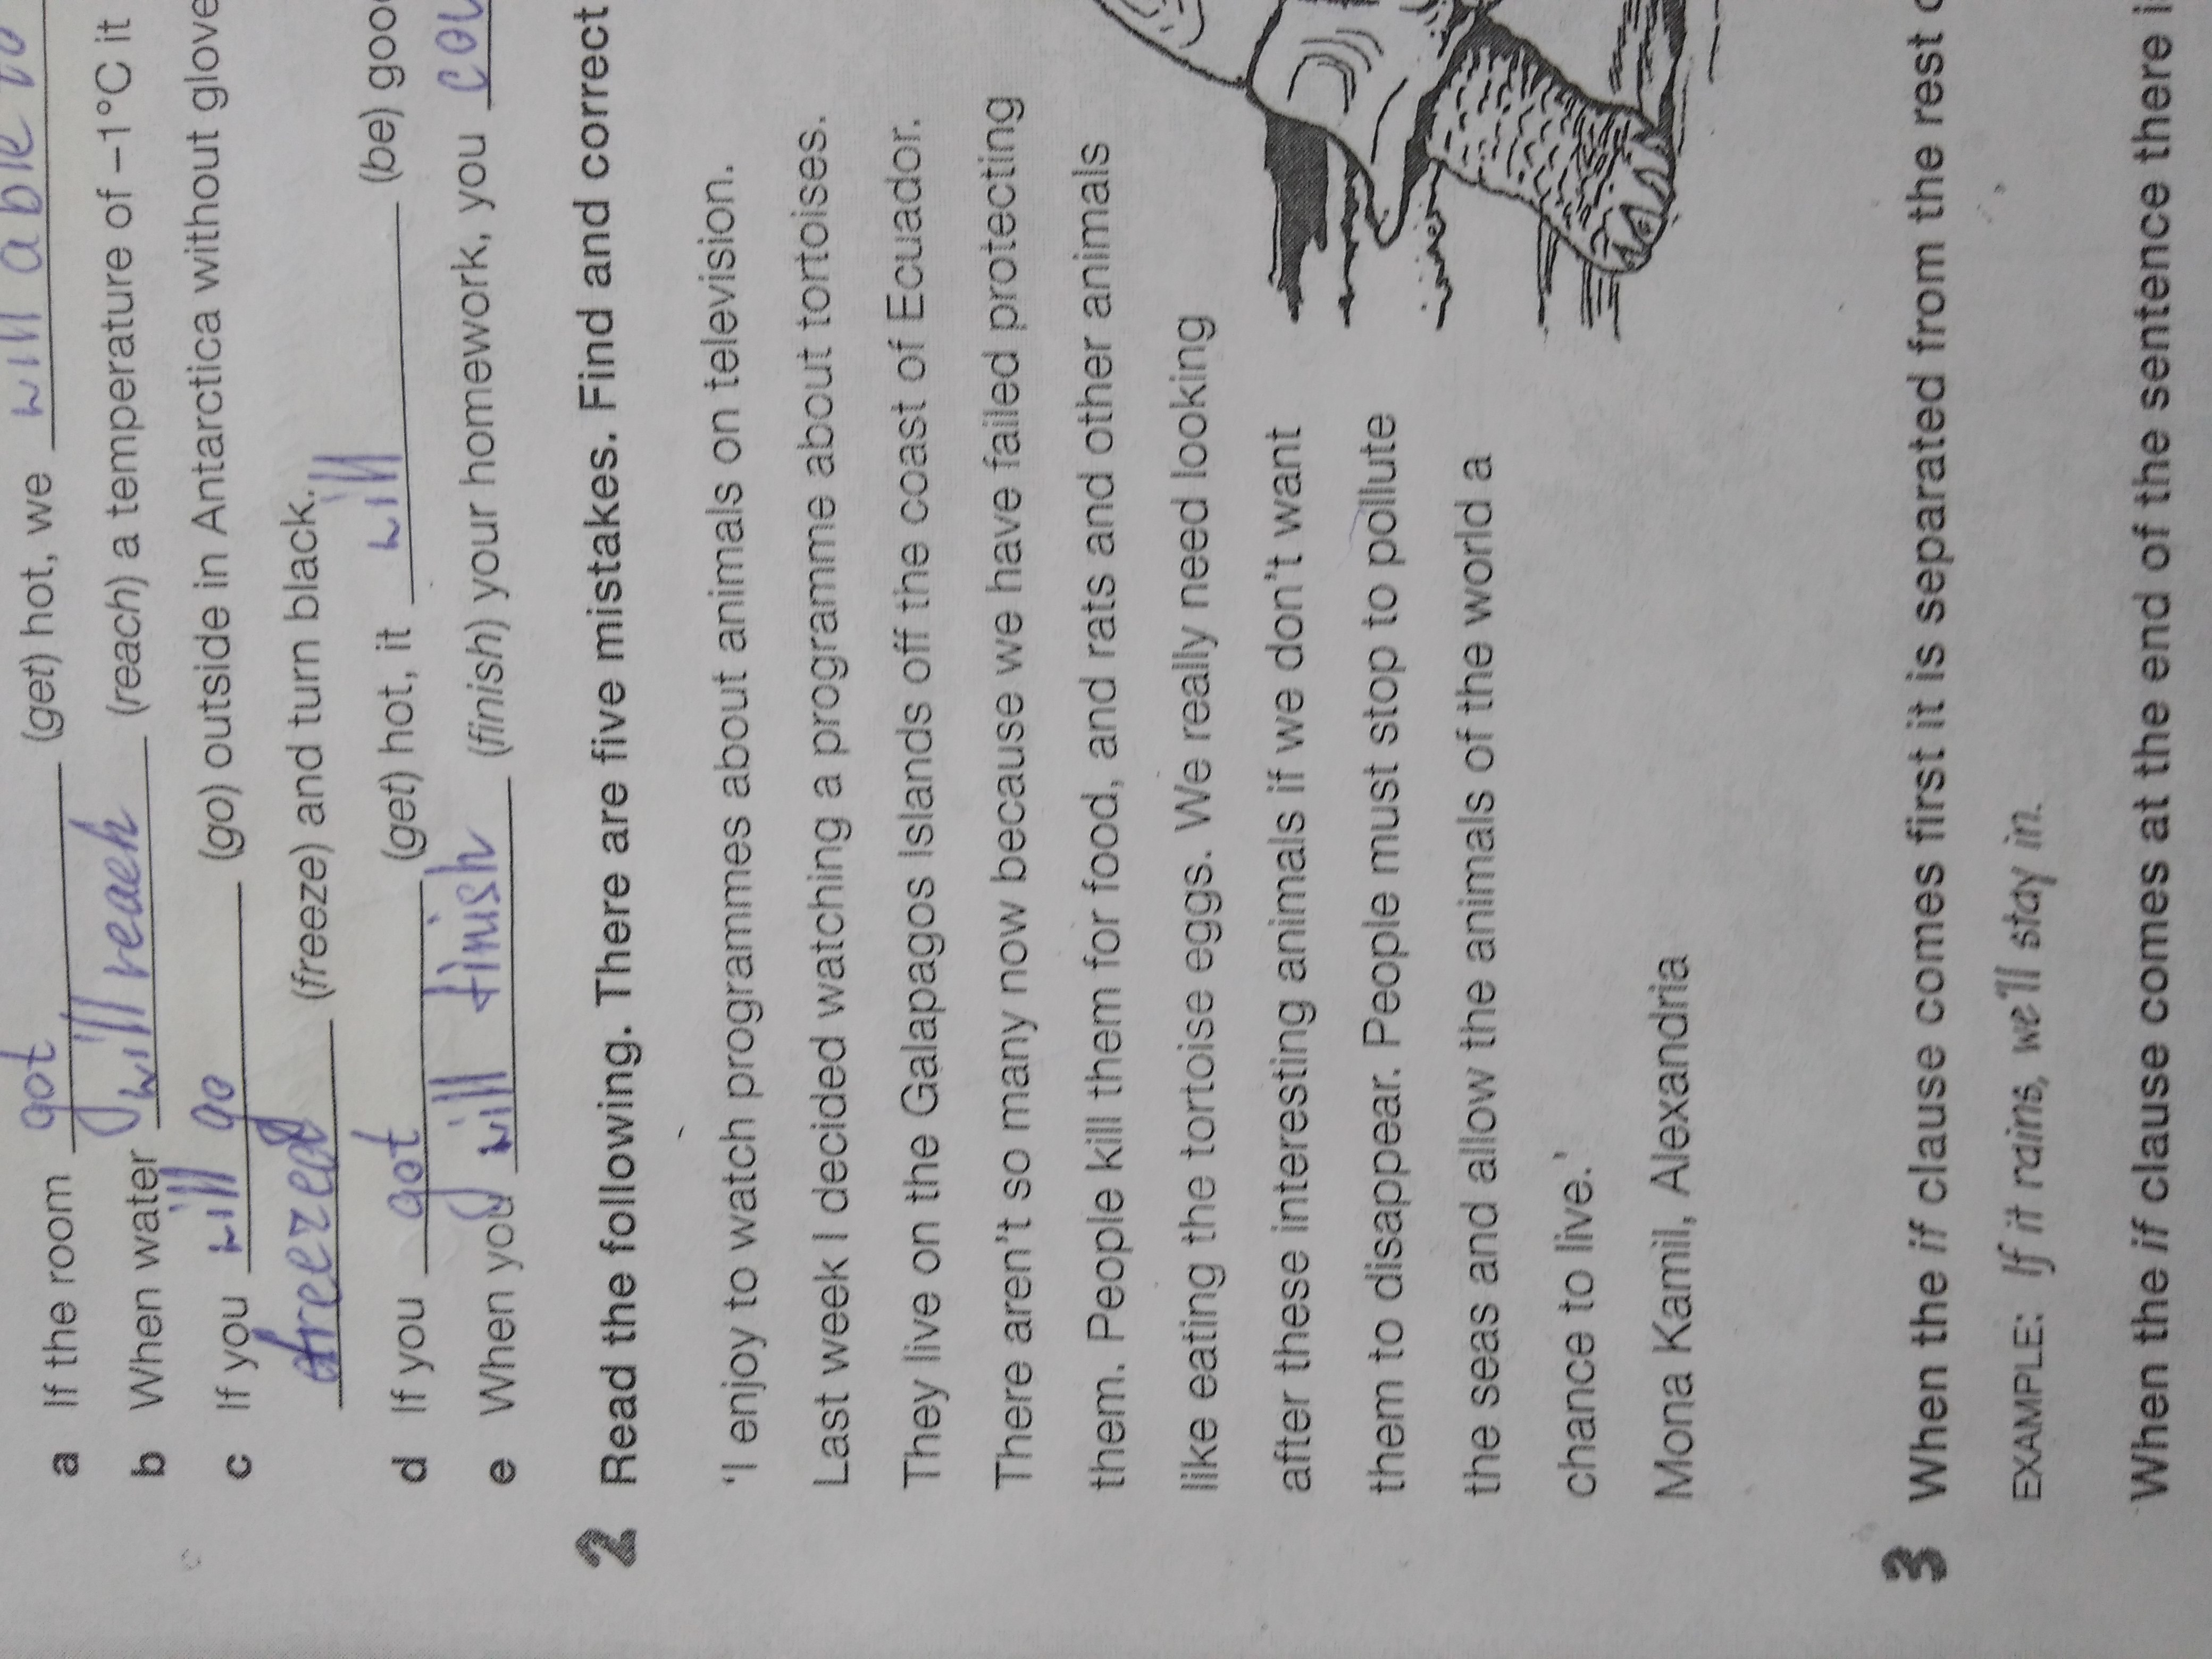 a If the room got (get) hot, we will able to
b When water will reach (reach) a temperature of –1°C it
c If you will go (go) outside in Antarctica without glove
freezed (freeze) and turn black. will
d If you got (get) hot, it will (be) good
e When you will finish (finish) your homework, you cou
2 Read the following. There are five mistakes. Find and correct
'I enjoy to watch programmes about animals on television.
Last week I decided watching a programme about tortoises.
They live on the Galapagos Islands off the coast of Ecuador.
There aren't so many now because we have failed protecting
them. People kill them for food, and rats and other animals
like eating the tortoise eggs. We really need looking
after these interesting animals if we don't want
them to disappear. People must stop to pollute
the seas and allow the animals of the world a
chance to live.'
Mona Kamil, Alexandria
3 When the if clause comes first it is separated from the rest o
EXAMPLE: If it rains, we'll stay in.
When the if clause comes at the end of the sentence there i